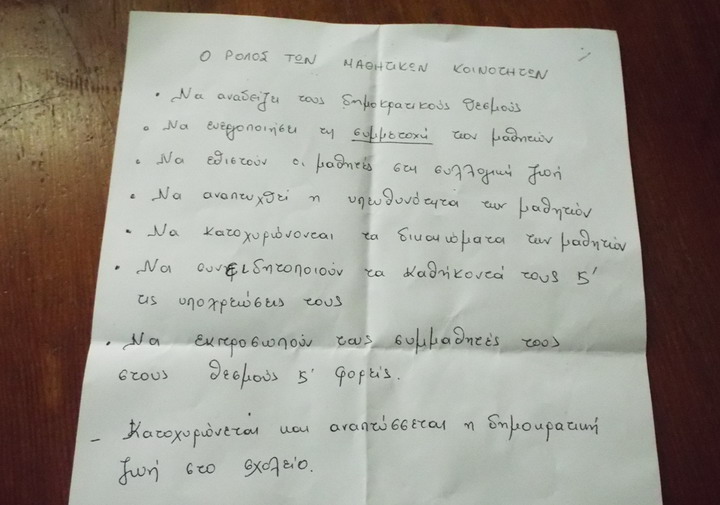 Ο ΡΟΛΟΣ ΤΩΝ ΜΑΘΗΤΙΚΩΝ ΚΟΙΝΟΤΗΤΩΝ
• Να αναδείξει τους δημοκρατικούς θεσμούς
• Να ενεργοποιήσει τη συμμετοχή των μαθητών
• Να εθιστούν οι μαθητές στη συλλογική ζωή
• Να αναπτυχθεί η υπευθυνότητα των μαθητών
• Να κατοχυρώνονται τα δικαιώματα των μαθητών
• Να συνειδητοποιούν τα καθήκοντά τους ϗ
τις υποχρεώσεις τους
• Να εκπροσωπούν τους συμμαθητές τους
στους θεσμούς ϗ φορείς.
– Κατοχυρώνεται και αναπτύσσεται η δημοκρατική
ζωή στο σχολείο.